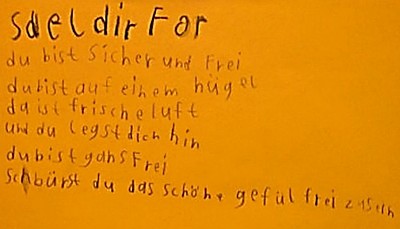 sdel dir For
du bist Sicher und Frei
du bist auf einem hügel
da ist frische luft
und du legst dich hin
du bist gans Frei
schbürst du das schöhne gefül frei zu sein